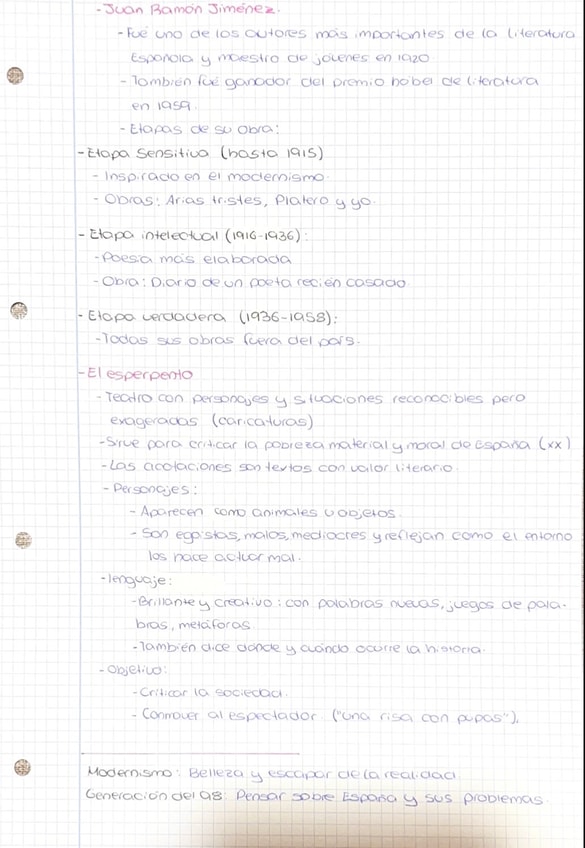 - Juan Ramón Jiménez.
- Fué uno de los autores más importantes de la literatura
Española y maestro de jóvenes en 1920
- También fué ganador del premio nobel de literatura
en 1959.
- Etapas de su obra:
- Etapa sensitiva (hasta 1915)
- Inspirado en el modernismo.
- Obras: Arias tristes, Platero y yo.
- Etapa intelectual (1916-1936):
- Poesía más elaborada
- Obra: Diario de un poeta recién casado
- Etapa verdadera (1936-1958):
- Todas sus obras fuera del país.
- El esperpento
- Teatro con personajes y situaciones reconocibles pero
exageradas (caricaturas)
- Sirve para criticar la pobreza material y moral de España (xx)
- Las acotaciones son textos con valor literario.
- Personajes:
- Aparecen como animales u objetos.
- Son egoístas, malos, mediocres y reflejan como el entorno
los hace actuar mal.
- lenguaje:
- Brillante y creativo: con palabras nuevas, juegos de pala-
bras, metáforas
- También dice dónde y cuándo ocurre la historia.
- Objetivo:
- Criticar la sociedad.
- Conmover al espectador ("una risa con pupas").
Modernismo: Belleza y escapar de la realidad.
Generación del 98: Pensar sobre España y sus problemas.